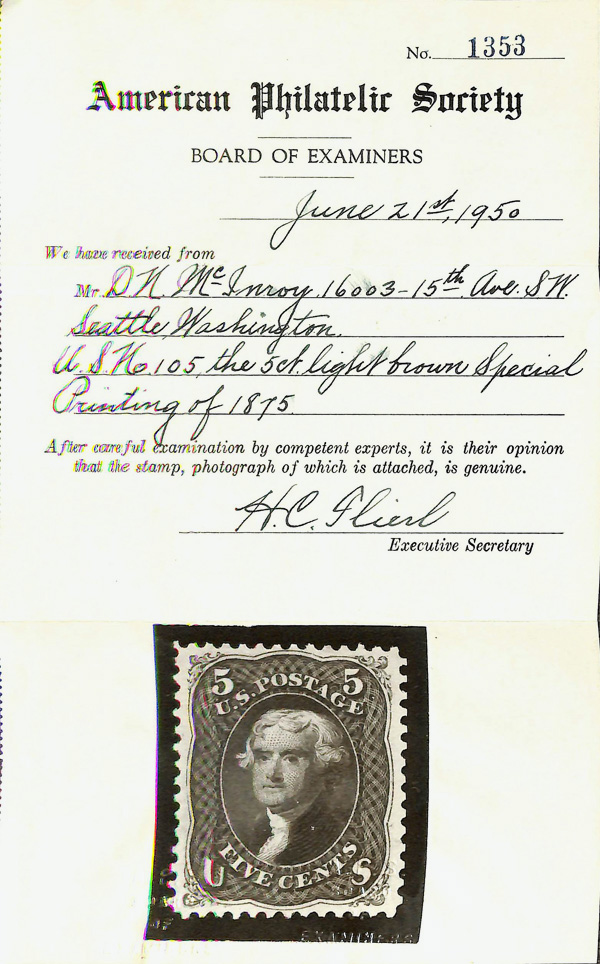 No. 1353
American Philatelic Society
BOARD OF EXAMINERS
June 21st, 1950
We have received from
Mr. D N. McInroy. 16003-15th Ave. S.W.
Seattle, Washington.
U.S. No. 105, the 5ct. light brown Special
Printing of 1875
After careful examination by competent experts, it is their opinion
that the stamp, photograph of which is attached, is genuine.
H.C. Flierl
Executive Secretary
5 5
U.S. POSTAGE
FIVE CENTS
U S
EXAMINERS